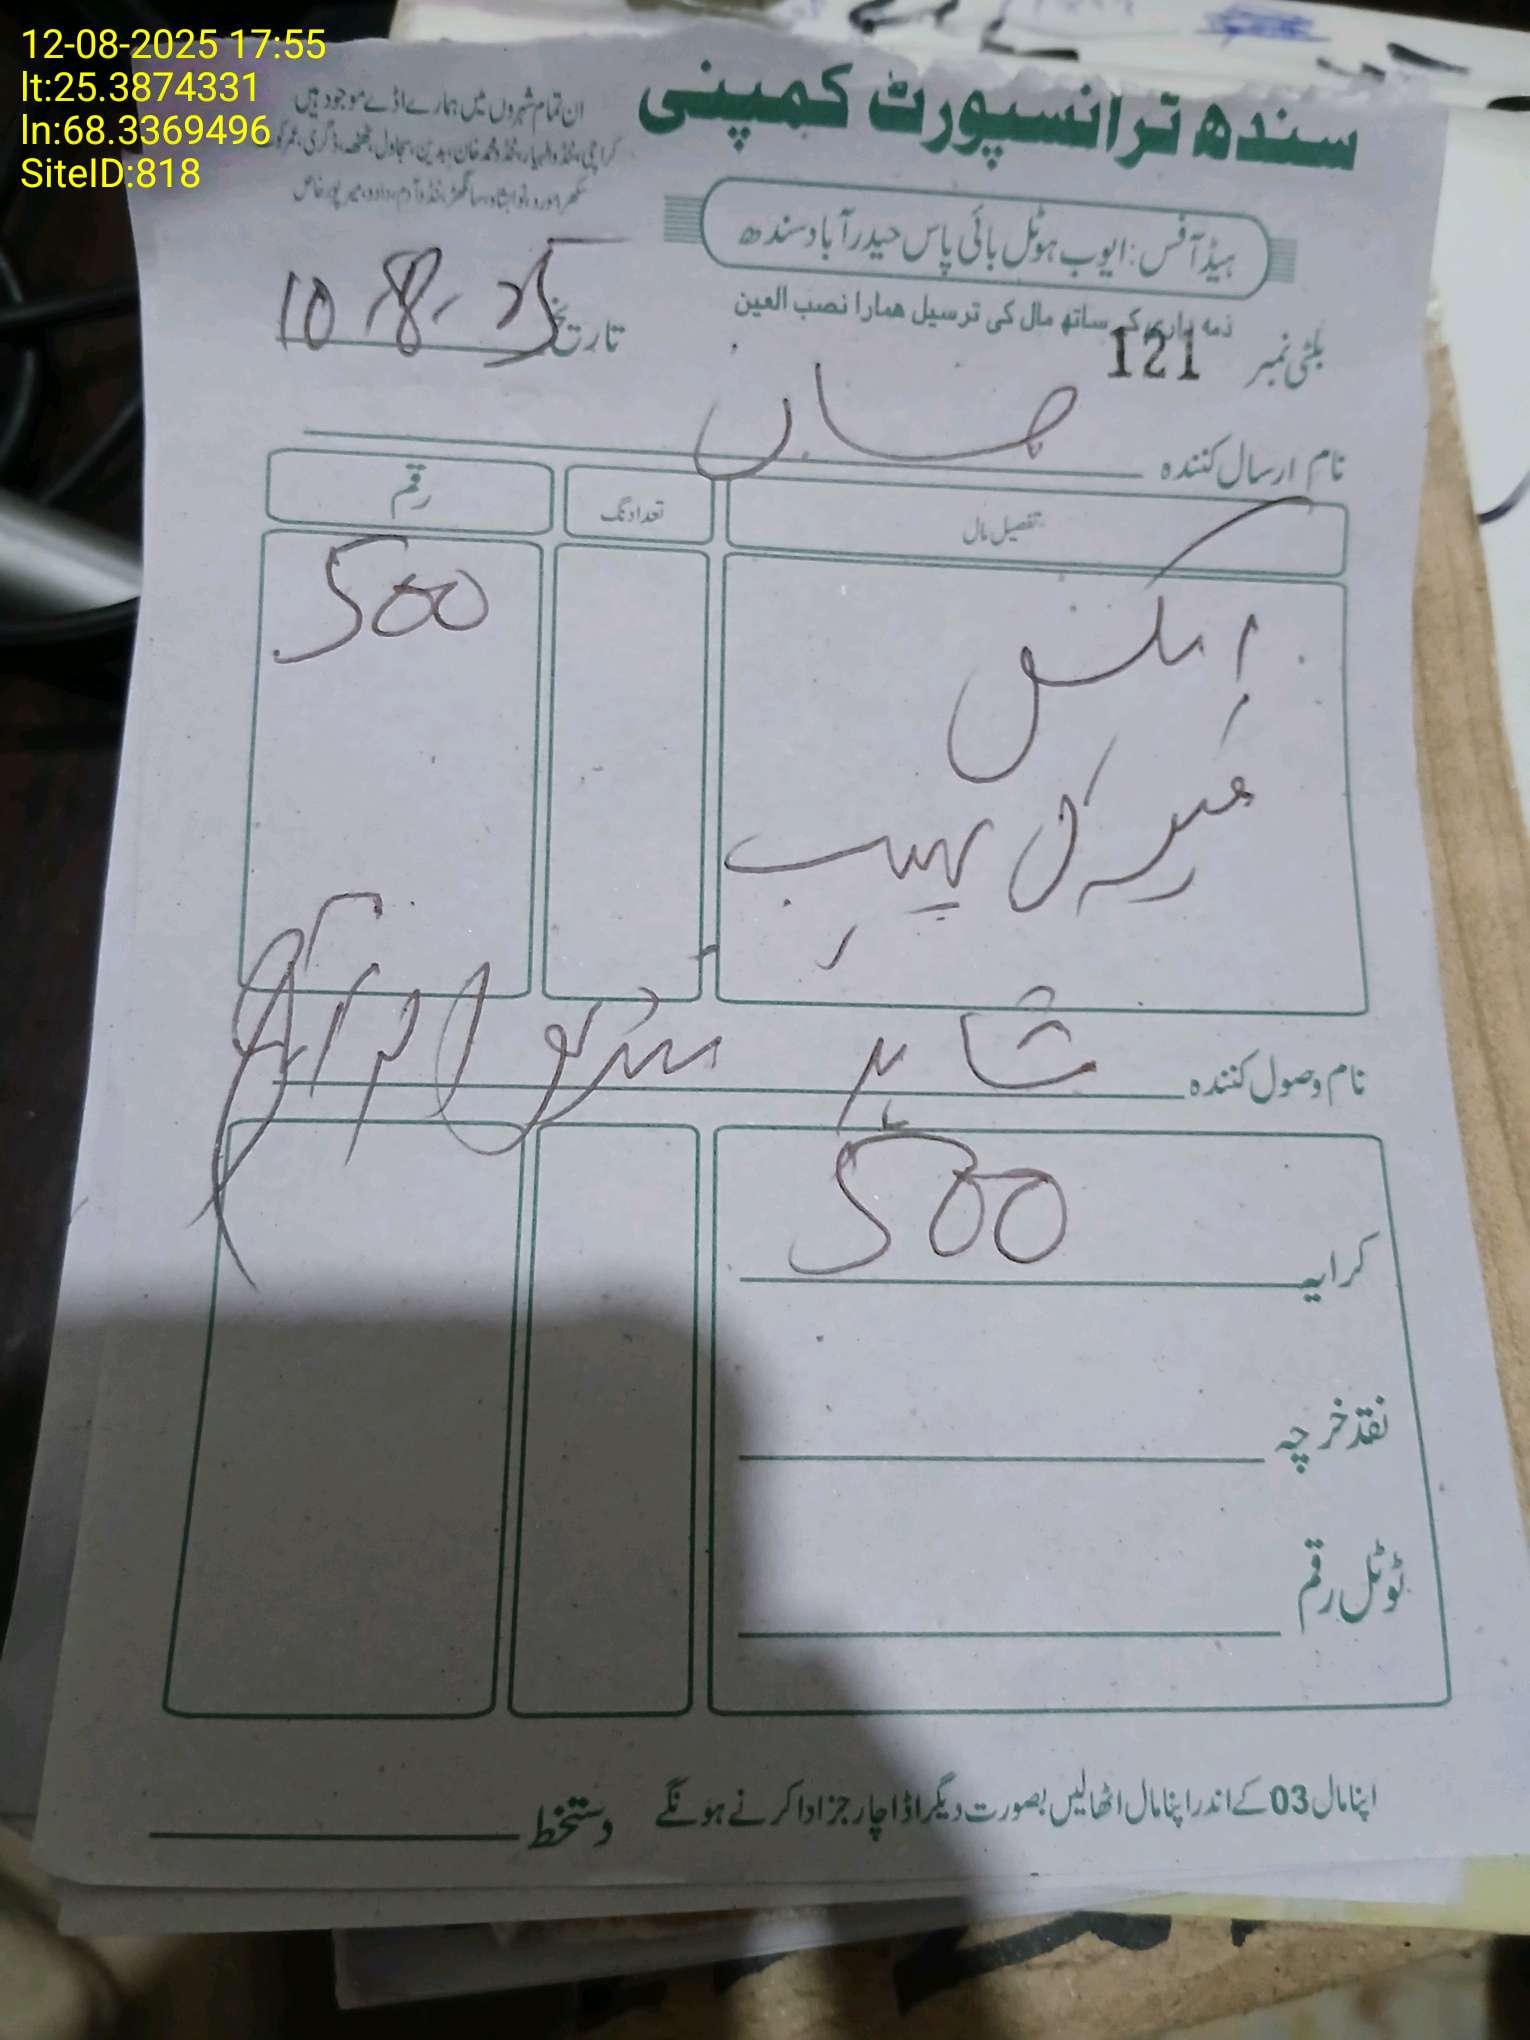 12-08-2025 17:55
lt:25.3874331
ln:68.3369496
SiteID:818
سندھ ٹرانسپورٹ کمپنی
ان تمام شہروں میں ہمارے اڈے موجود ہیں
کراچی، ٹنڈوالہیار، ٹنڈو محمد خان، بدین، سجاول، ٹھٹھہ، ڈگری، عمرکوٹ
سکھر، مورو، نوابشاہ، سانگھڑ، ٹنڈوآدم، دادو، میرپورخاص
ہیڈ آفس: ایوب ہوٹل بائی پاس حیدرآباد سندھ
ذمہ داری کے ساتھ مال کی ترسیل ہمارا نصب العین
بلٹی نمبر 121
تاریخ 10-8-25
نام ارسال کنندہ
تفصیل مال تعداد نگ رقم
500
نام وصول کنندہ
کرایہ 500
نقد خرچہ
ٹوٹل رقم
اپنا مال 03 کے اندر اپنا مال اٹھالیں بصورت دیگر اڈا چارجز ادا کرنے ہونگے
دستخط